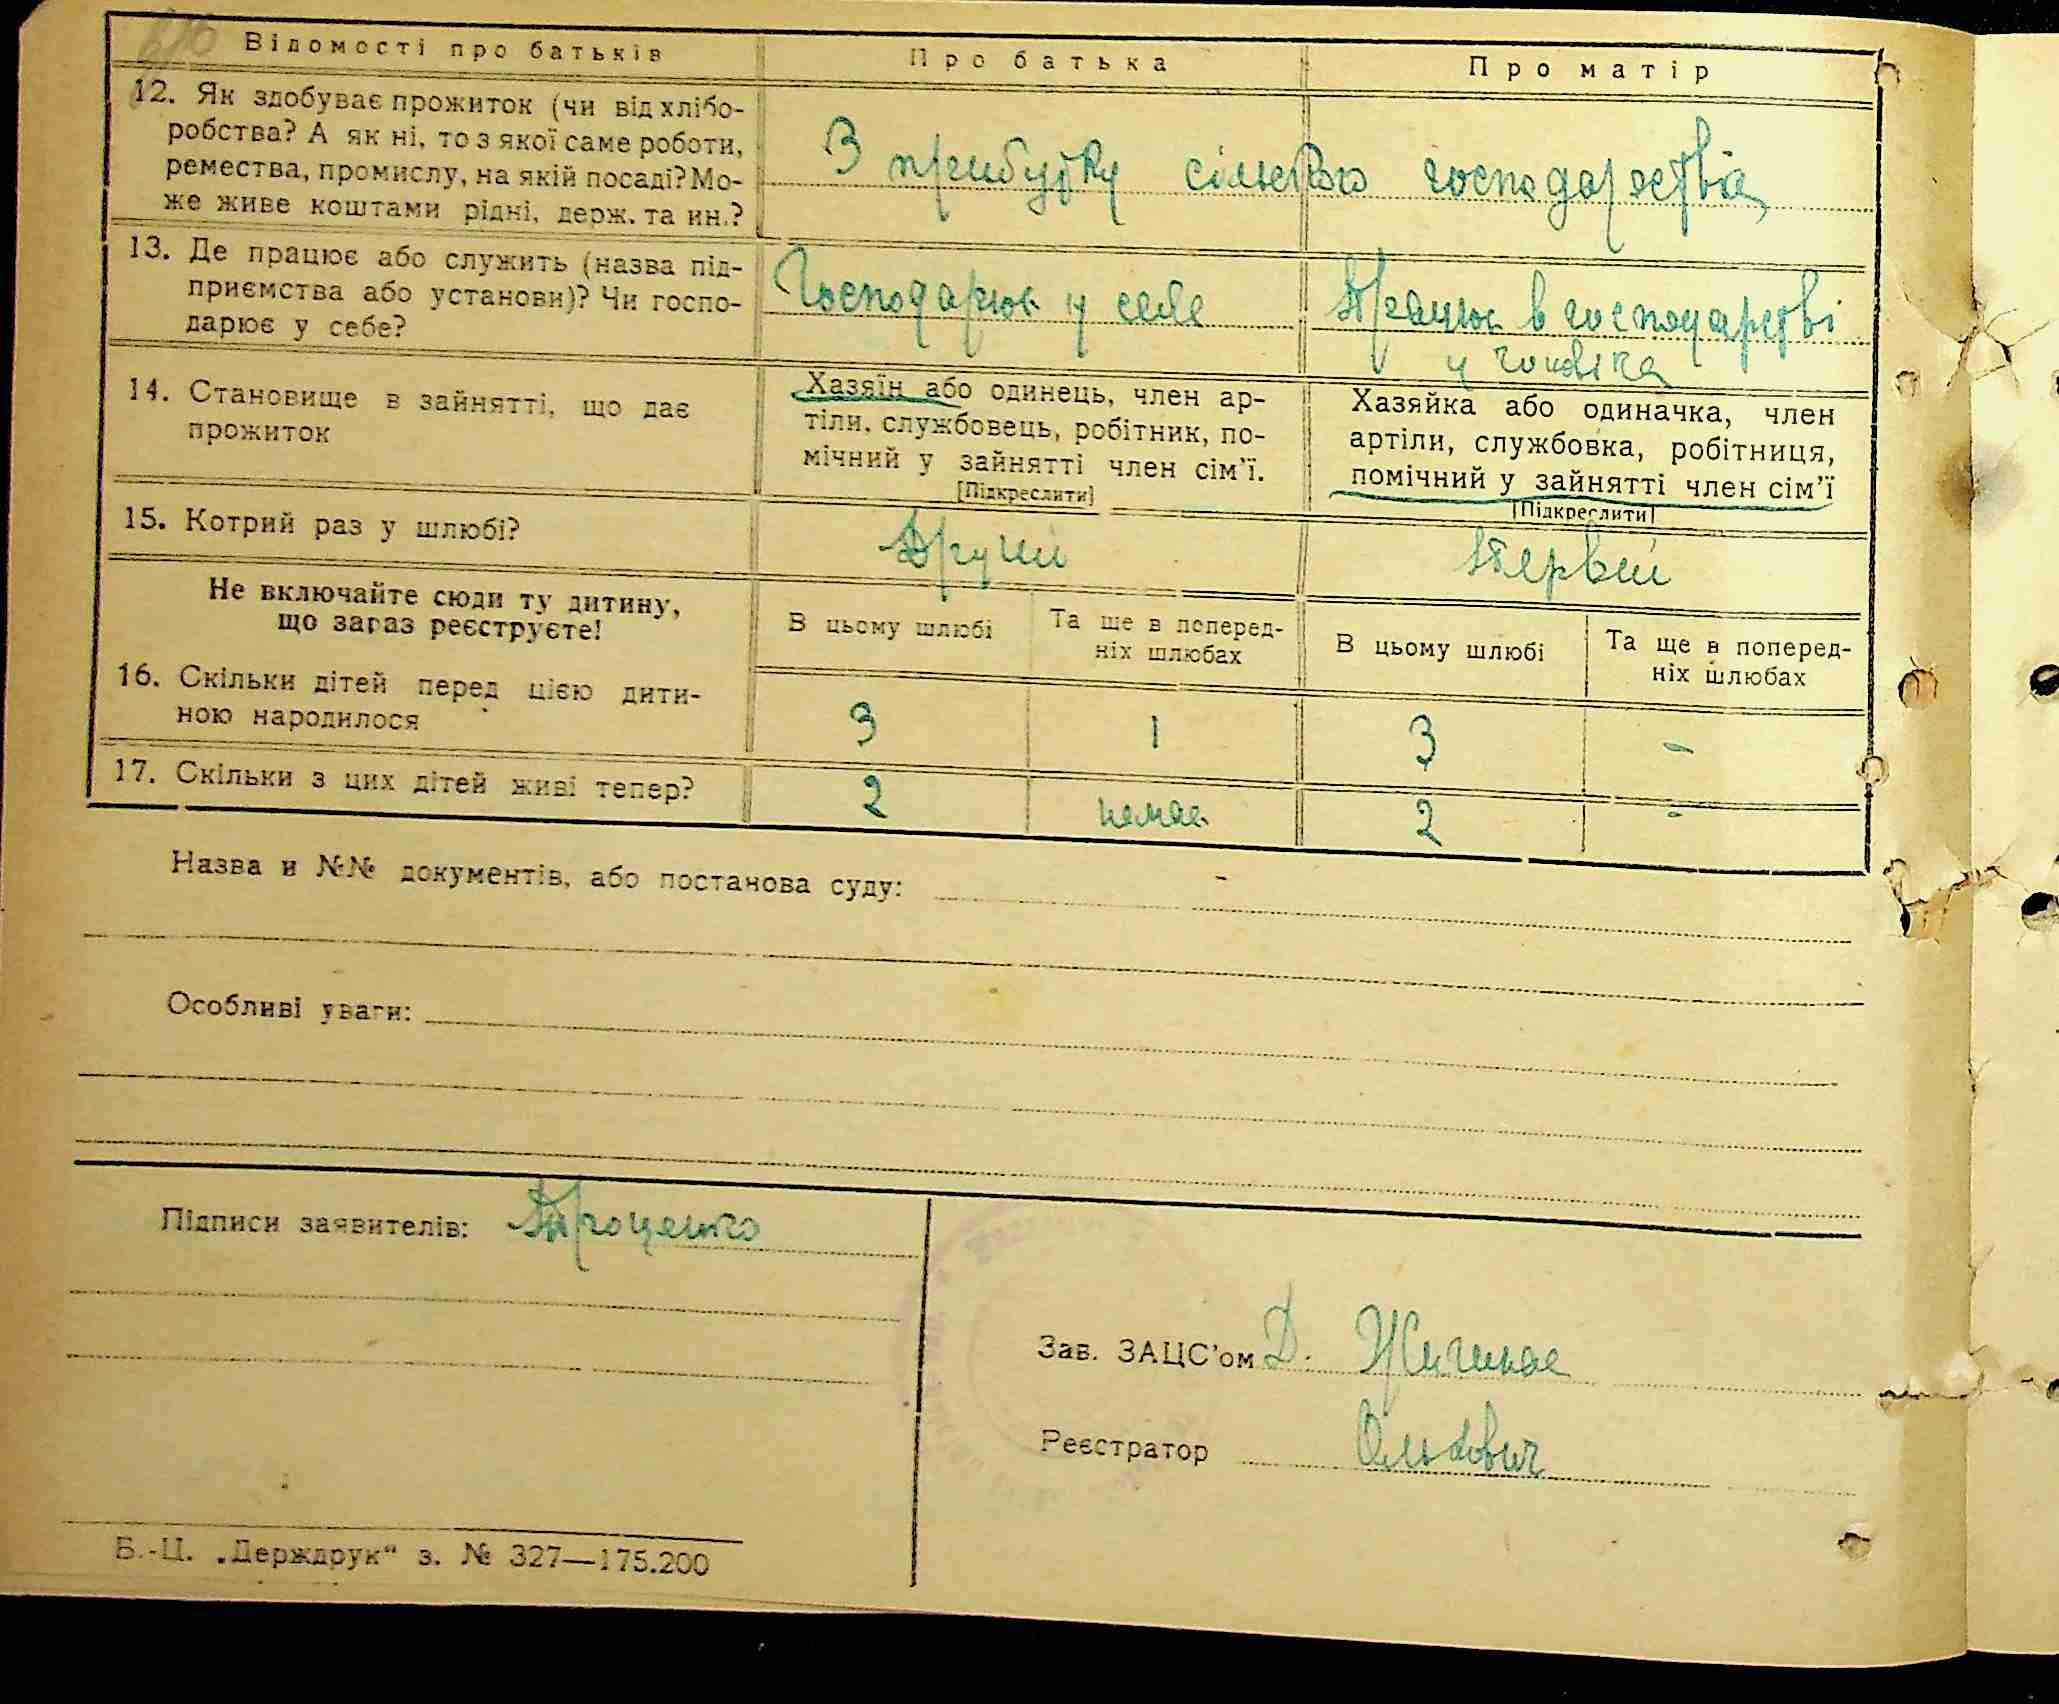 Відомості про батьків
Про батька
Про матір
12. Як здобуває прожиток (чи від хлібо-
робства? А як ні, то з якої саме роботи,
ремества, промислу, на якій посаді? Мо-
же живе коштами рідні, держ. та ин.?
З прибутку сільського господарства
13. Де працює або служить (назва під-
приємства або установи)? Чи госпо-
дарює у себе?
Господарює у себе
Працює в господарстві
у чоловіка
14. Становище в зайнятті, що дає
прожиток
Хазяїн або одинець, член ар-
тіли, службовець, робітник, по-
мічний у зайнятті член сім'ї.
[Підкреслити]
Хазяйка або одиначка, член
артіли, службовка, робітниця,
помічний у зайнятті член сім'ї
[Підкреслити]
15. Котрий раз у шлюбі?
Другий
Первий
Не включайте сюди ту дитину,
що зараз реєструєте!
В цьому шлюбі
Та ще в поперед-
ніх шлюбах
В цьому шлюбі
Та ще в поперед-
ніх шлюбах
16. Скільки дітей перед цією дити-
ною народилося
3
1
3
-
17. Скільки з цих дітей живі тепер?
2
немає
2
-
Назва и №№ документів, або постанова суду: -
Особливі уваги:
Підписи заявителів: Проценко
Зав. ЗАЦС'ом Д.
Реєстратор
Б.-Ц. „Держдрук“ з. № 327—175.200